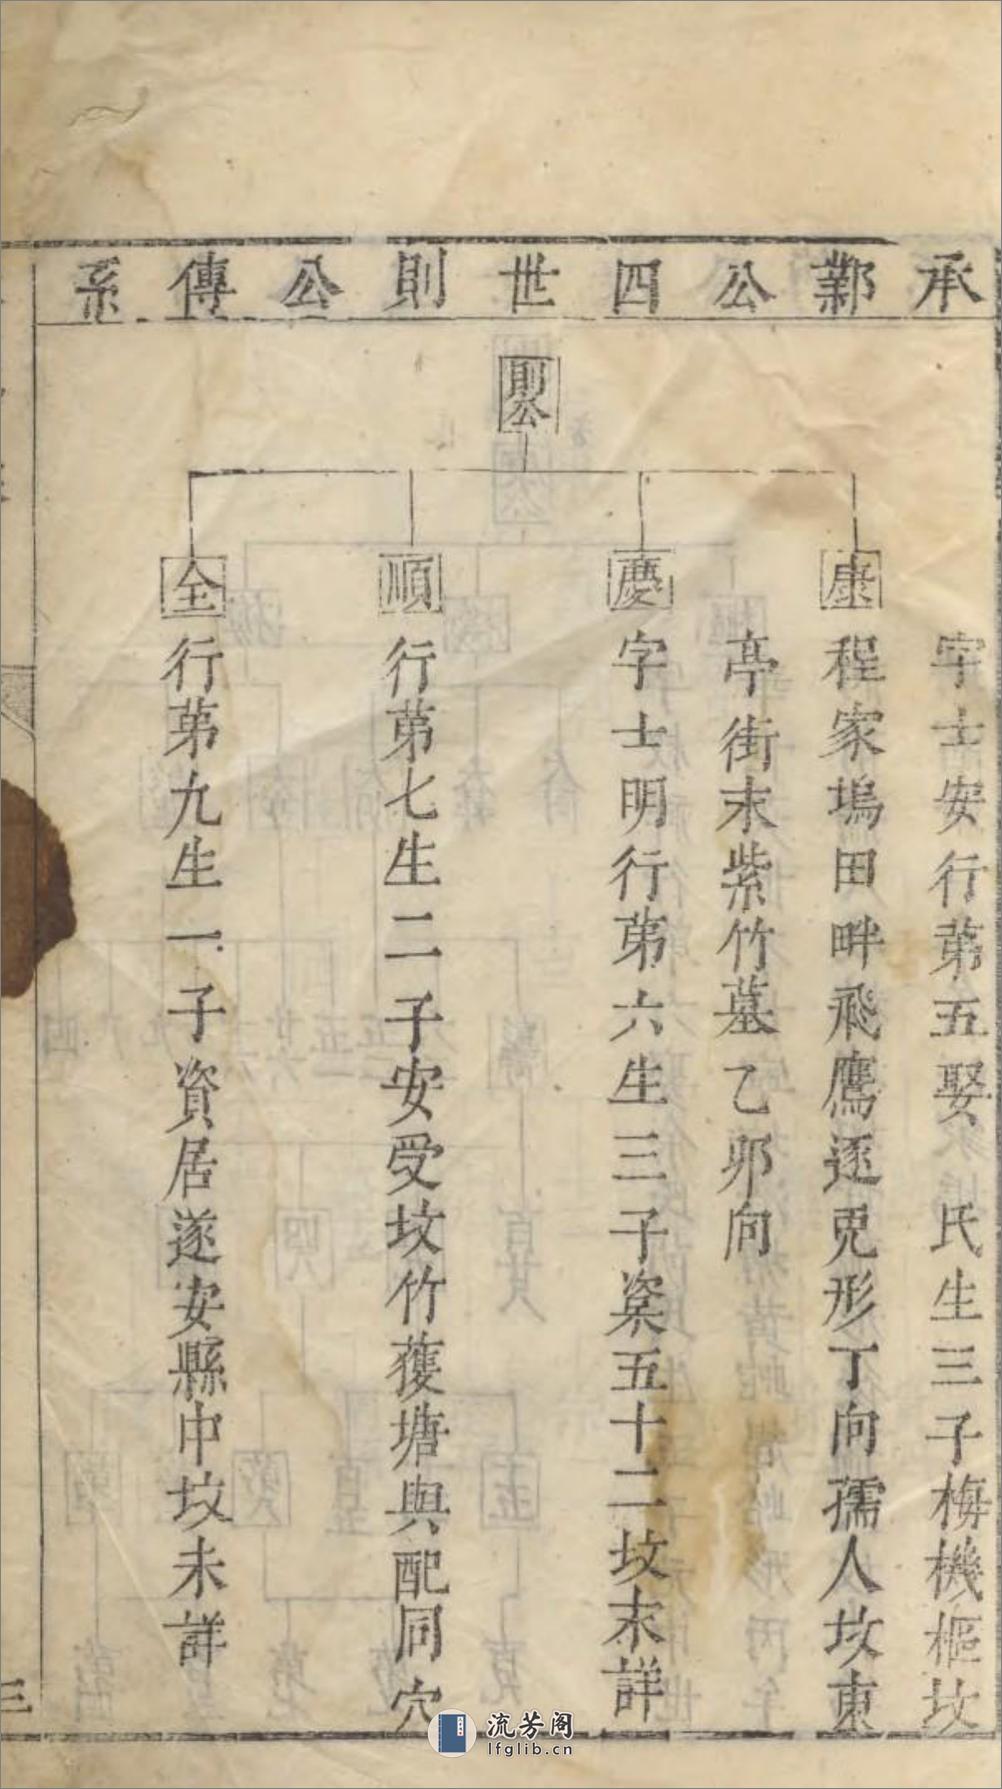 承鄴公四世則公傳系
則公
康
字士安行第五娶　氏生三子梅機樞坟
程家塢田畔飛鷹逐兎形丁向孺人坟東
亭街末紫竹墓乙卯向
慶
字士明行第六生三子粢五十二坟未詳
順
行第七生二子安受坟竹蒦塘與配同穴
全
行第九生一子資居遂安縣中坟未詳
三
流芳阁
lfglib.cn